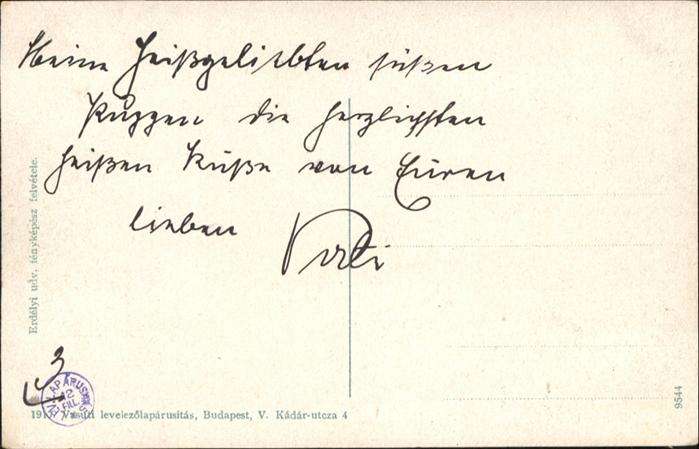 Meine heißgeliebten süßen
Puzzen die herzlichsten
heißen Küße von Euren
lieben Vati
3
Erdélyi udv. fényképész felvétele.
LAPÁRUS
12
FILL.
191 Vasuti levelezőlapárusitás, Budapest, V. Kádár-utcza 4
9544